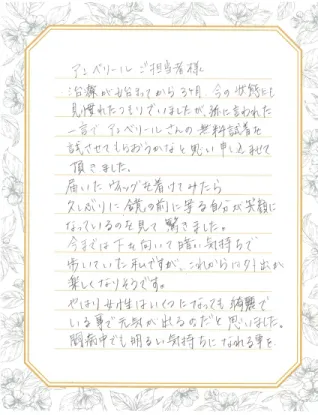 アンベリールご担当者様
治療が始まってから3ヶ月、今の状態にも
見慣れたつもりでいましたが、孫に言われた
一言でアンベリールさんの無料試着を
試させてもらおうかなと思い申し込ませて
頂きました。
届いたウィッグを着けてみたら
久しぶりに鏡の前に写る自分が笑顔に
なっているのを見て驚きました。
今までは下を向いて暗い気持ちで
いた私ですが、これからは外出が
楽しくなりそうです。
やはり女性はいくつになっても綺麗で
いる事で元気が出るのだと思いました。
闘病中でも明るい気持ちになれる事を